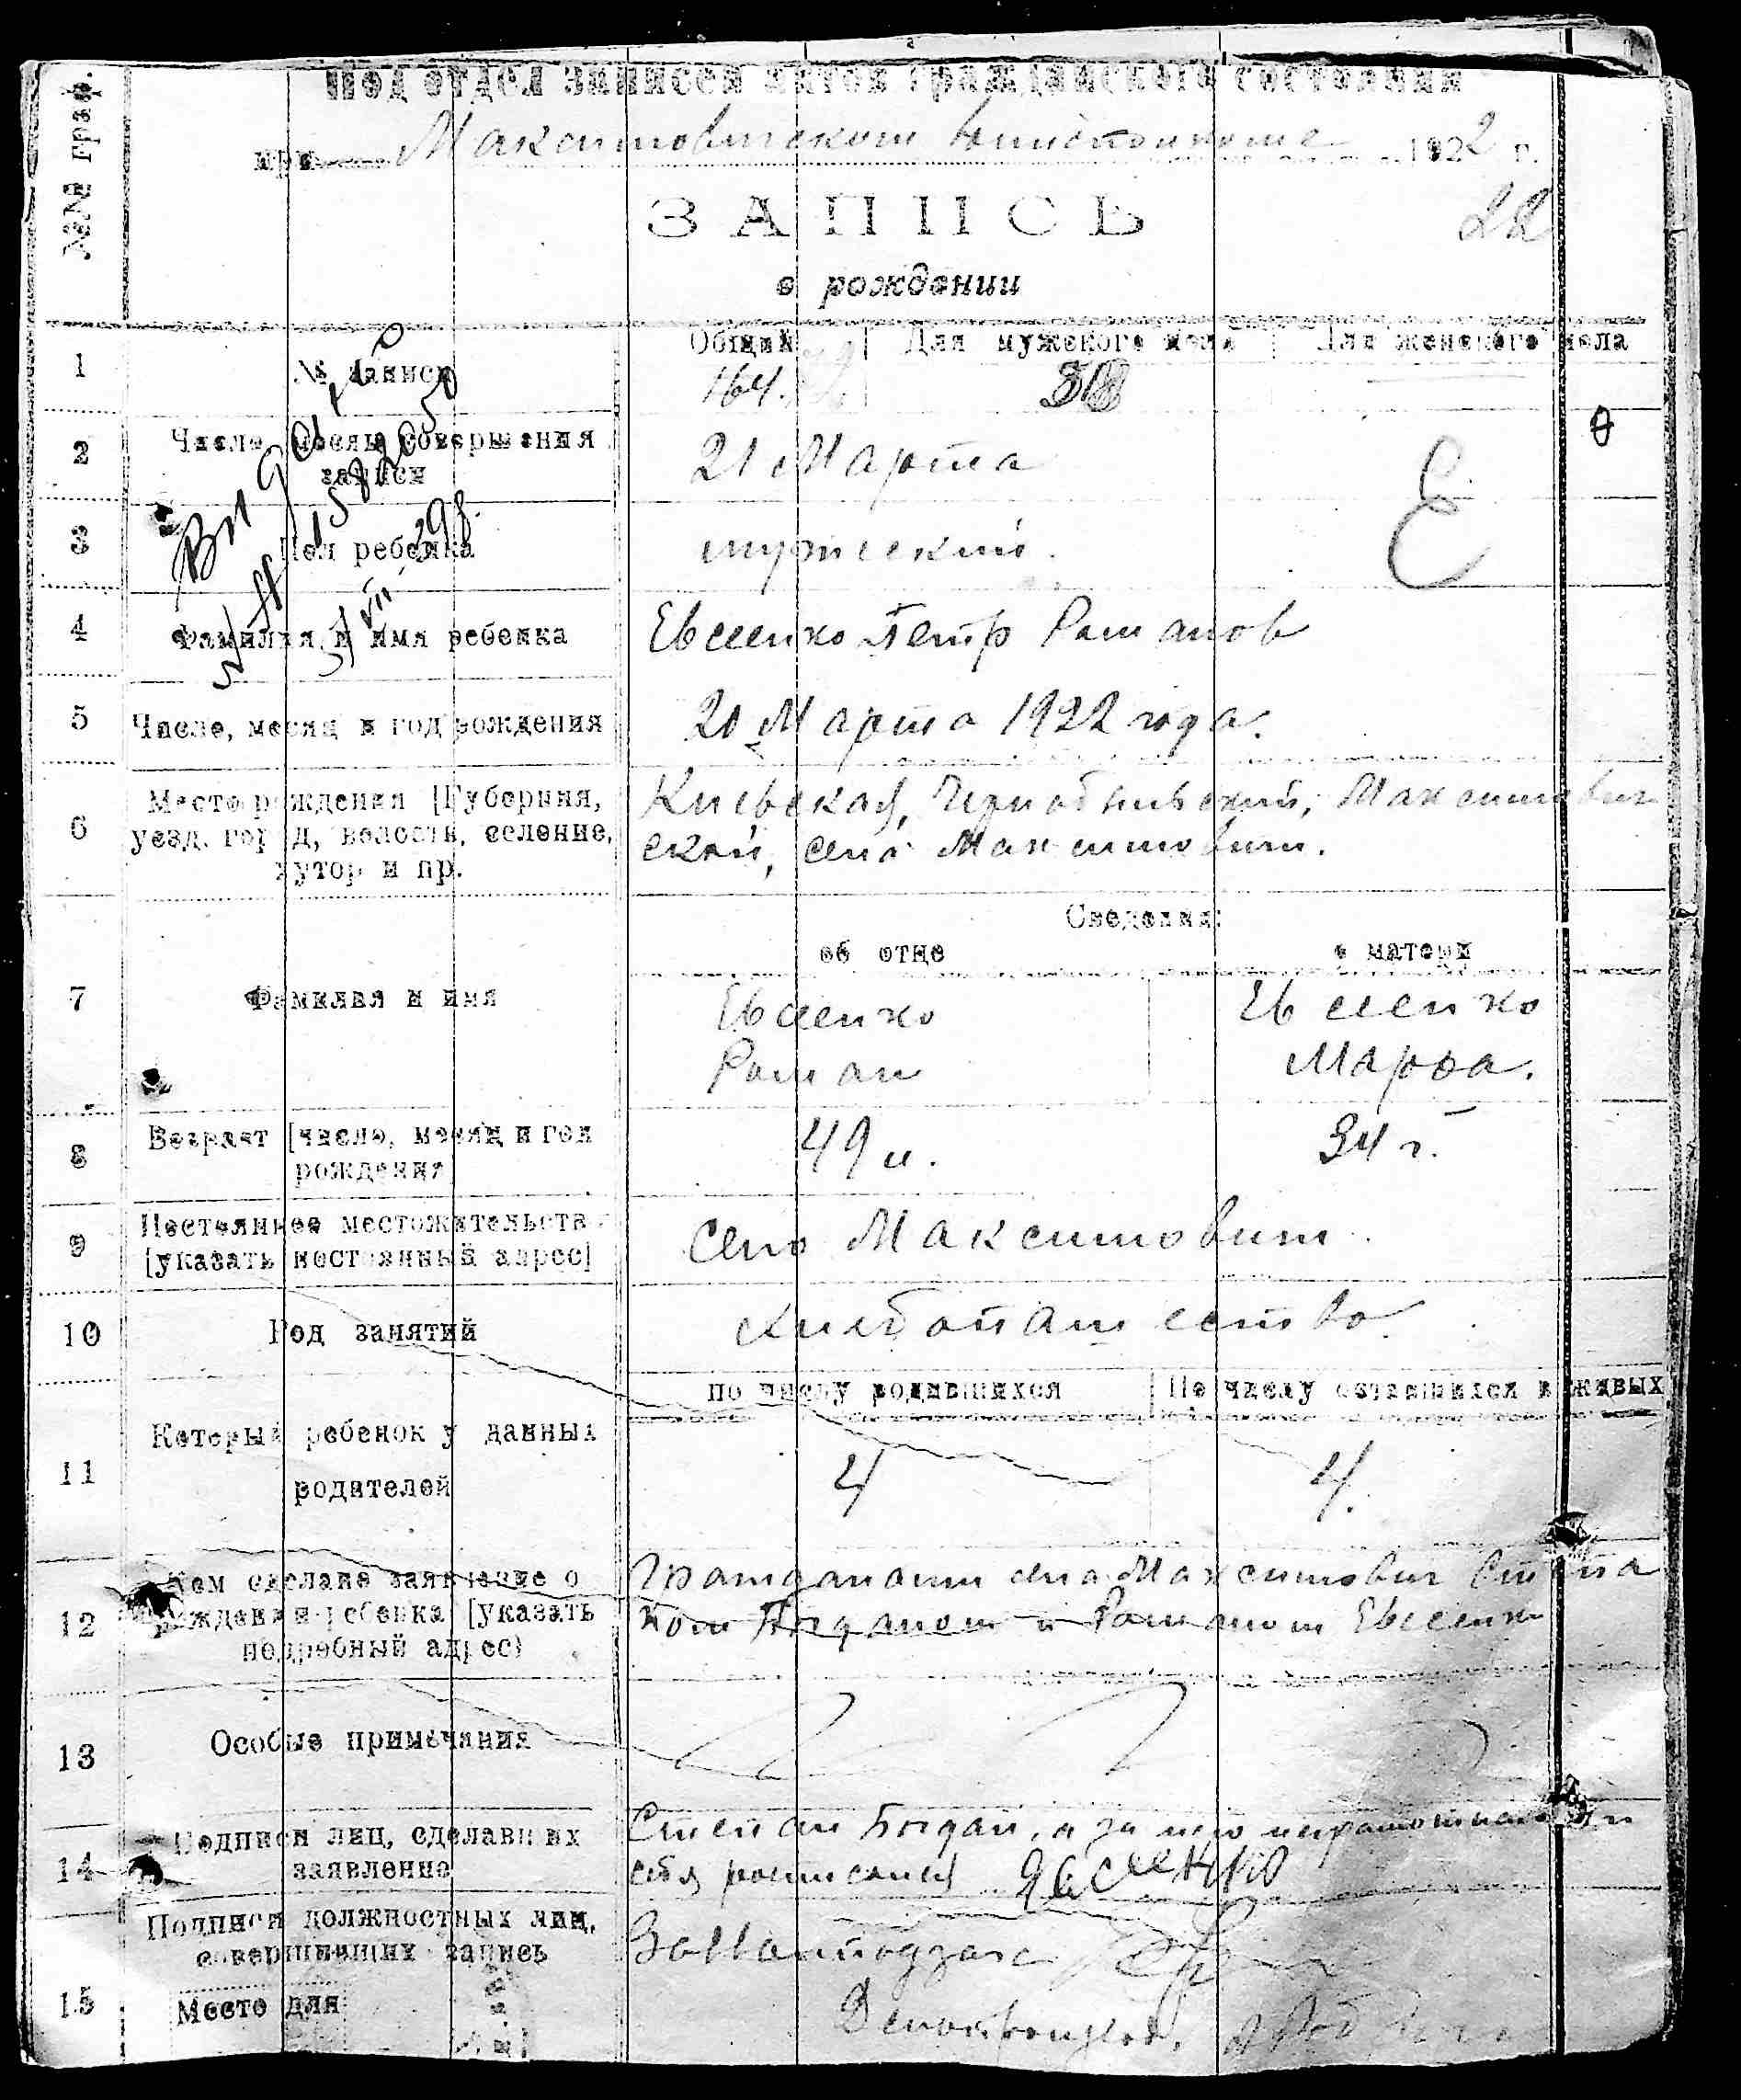 №№ граф.
Под отдел записей актов гражданского состояния
при Максимовическом 1922 г.
ЗАПИСЬ
22
о рождении
Общий Для мужского пола Для женского пола
1 № записи 164.
2 Число, месяц совершения
записи 21 Марта
3 Пол ребенка мужеский.
4 Фамилия и имя ребенка Евсеенко Петр Романов
5 Число, месяц и год рождения 20 Марта 1922 года.
6 Место рождения [Губерния,
уезд, город, волость, селение,
хутор и пр.
Киевская, Чернобыльский, Максимович
ской, село Максимович.
Сведения:
об отце о матери
7 Фамилия и имя Евсеенко Евсеенко
Роман Марфа.
8 Возраст [число, месяц и год
рождения 49 л. 34 г.
9 Постоянное местожительство
[указать постоянный адрес] Село Максимович.
10 Род занятий хлебопашество.
по числу родившихся По числу оставшихся в живых
11 Который ребенок у данных
родителей 4 4.
12 Кем сделано заявление о
рождении ребенка [указать
подробный адрес)
Гражданами села Максимович Степа
ном Богданом и Романом Евсеенко
13 Особые примечания
14 Подписи лиц, сделавших
заявление
Степан Богдан, а за него неграмотного и
себя росписался Евсеенко
15 Подписи должностных лиц,
совершивших запись
Место для
Делопроизвод.